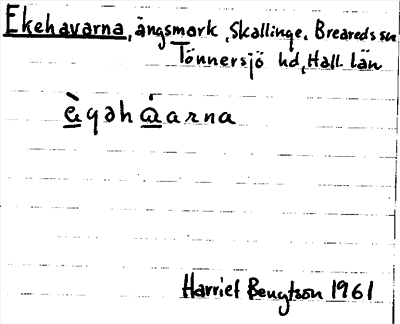 Ekehavarna, ängsmark, Skallinge, Breareds sn
Tönnersjö hd, Hall. län
è̲qəhå̲̀arna
Harriet Bengtson 1961